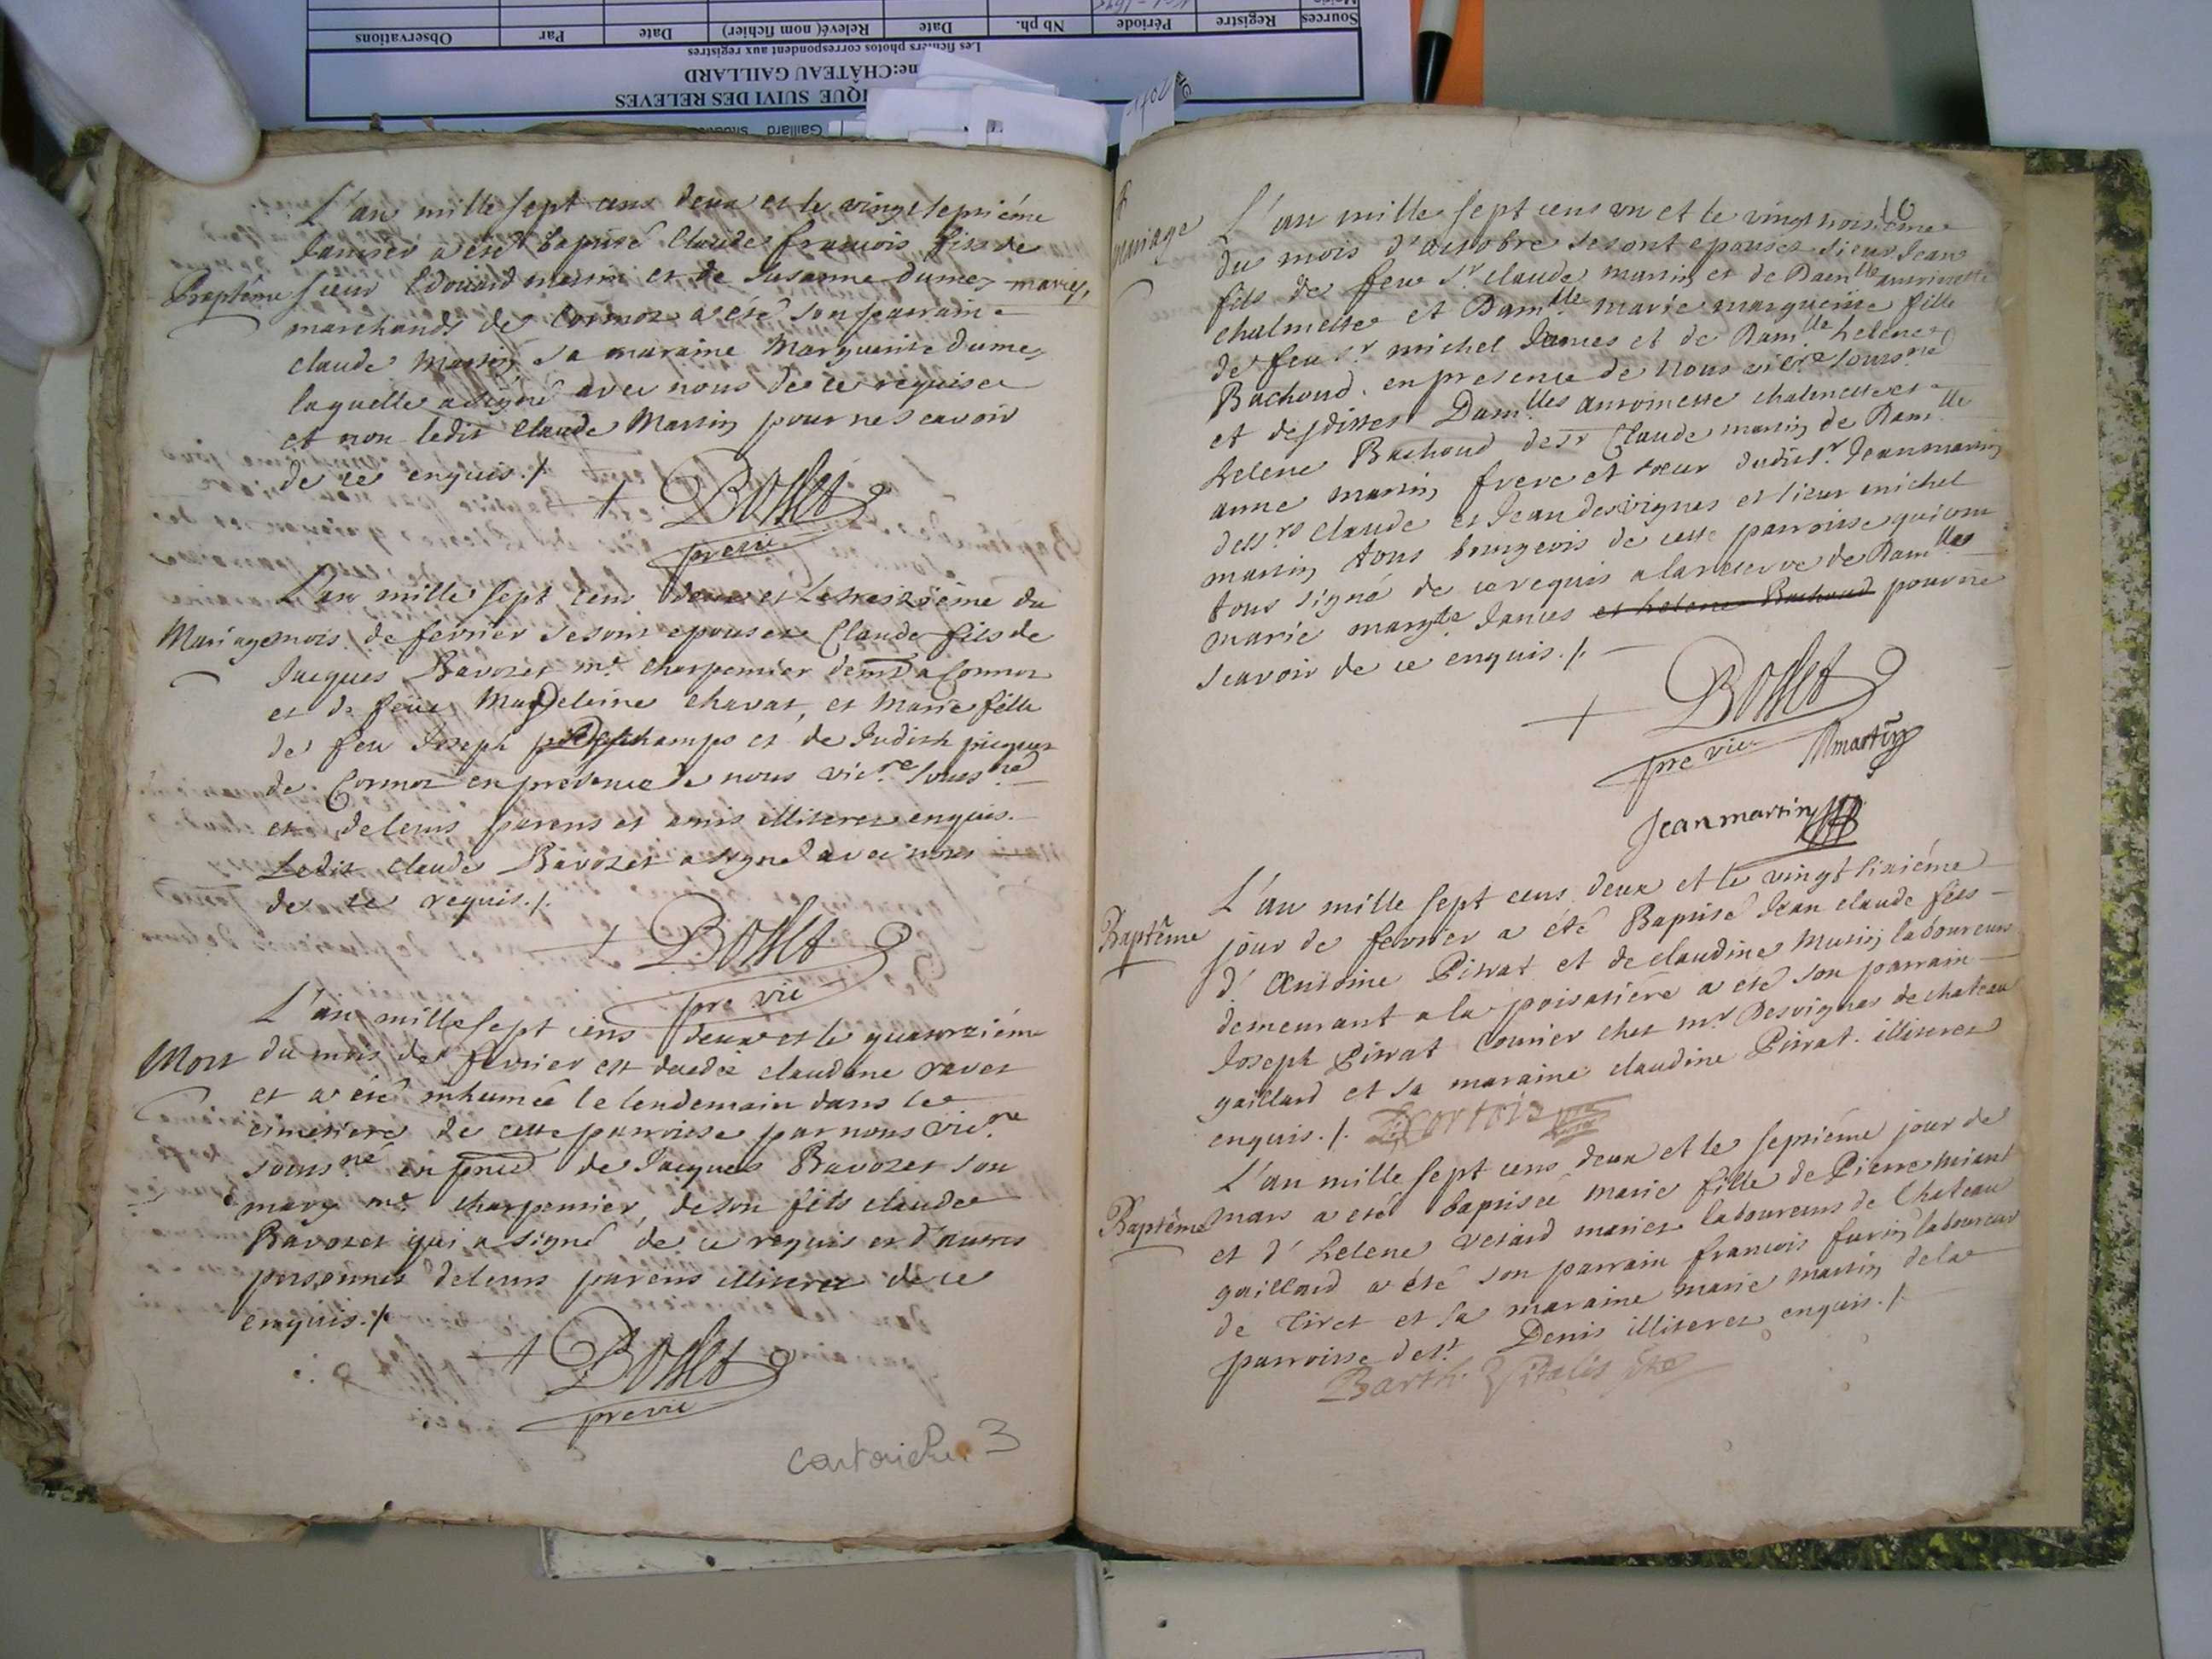 Sources Registre Période Nb ph. Date Relevé (nom fichier) Date Par Observations
Les fichiers photos correspondent aux registres
ne:CHÂTEAU GAILLARD
IQUE SUIVI DES RELEVES
Gaillard
1702
L'an mille sept cens deux et le vingt septiéme
Janvier a eté baptisé Claude francois fils de
Baptême sieur Edouard martin et de Susanne dumes mariez,
marchands de Cormoz a été son parrain
claude Martin sa maraine Marguerite dumes
laquelle a signé avec nous de ce requise
et non ledit Claude Martin pour ne scavoir
de ce enquis ./.
+ Bollet
pre vic
L'an mille sept cens deux et le treiziéme du
Mariage mois de février se sont epousez Claude fils de
Jacques Bavozet me. charpentier demt a Cormoz
et de feüe Magdeleine chavat, et Marie fille
de feu Joseph Deschamps et de Judith
de Cormoz en presence de nous vicre. sousné
et de leurs parens et amis illiterez enquis.
Ledit claude Bavozet a signé avec nous
de ce requis ./.
+ Bollet
pre vic
L'an mille sept cens deux et le quatorziéme
Mort du mois de fevrier est decedée claudine ravet
et a eté inhumée le lendemain dans le
cimetiere de cette parroisse par nous vicre
sousné en pnce de Jacques Bavozet son
mary me. charpentier, de son fils claude
Bavozet qui a signé de ce requis et d'autres
personnes de leurs parens illiterez de ce
enquis ./.
+ Bollet
pre vic
3
mariage L'an mille sept cens un et le vingt troisiéme
du mois d'octobre se sont epousez sieur Jean
fils de feu Sr. claude martin et de Damlle antoinette
chalmette et Damlle marie marguerite fille
de feu Sr. michel Janies et de Damlle helene
Bachoud. en presence de nous vicre sousné
et desdittes Damlles antoinette chalmette et
helene Bachoud de Sr Claude martin de Damlle
anne martin frere et soeur dudit Sr. Jean martin
des Srs claude et Jean desvignes et sieur michel
martin tous bourgeois de cette parroisse qui ont
tous signé de ce requis a la reserve de Damlles
marie margte Janies et helene Bachoud pour ne
scavoir de ce enquis ./.
+ Bollet
pre vic
Mmartin
Jean martin
L'an mille sept cens deux et le vingt sixiéme
Baptême jour de fevrier a été Baptisé Jean claude fils
d'Antoine Pitrat et de claudine Mutin laboureurs
demeurant a la poisatiére a eté son parrain
Joseph Pitrat chez mr Desvignes de chateau
gaillard et sa maraine claudine Pitrat. illiterez
enquis ./.
L'an mille sept cens deux et le septiéme jour de
Baptême mars a eté baptisée marie fille de Pierre miant
et d'helene Vetard mariez laboureurs de Chateau
gaillard a eté son parrain francois furin laboureur
de Tiret et sa maraine marie martin de la
parroisse de St. Denis illiterez enquis ./.
Barth. Vitalis